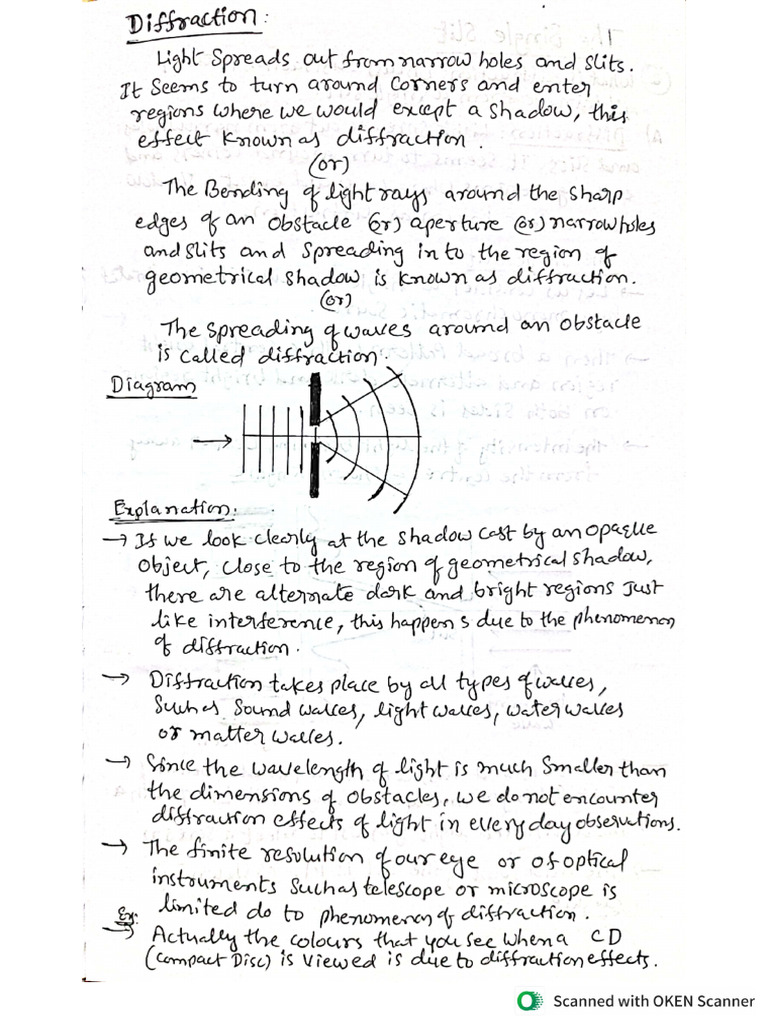 Diffraction:
Light Spreads out from narrow holes and slits.
It Seems to turn around Corners and enter
regions where we would except a Shadow, this
effect Known as diffraction.
(or)
The Bending of light rays around the Sharp
edges of an Obstacle (or) aperture (or) narrow holes
and slits and Spreading in to the region of
geometrical Shadow is Known as diffraction.
(or)
The Spreading of waves around an Obstacle
is Called diffraction.
Diagram
Explanation:
→ If we look clearly at the Shadow cast by an opaque
Object, Close to the region of geometrical shadow,
there are alternate dark and bright regions Just
like interference, this happens due to the phenomenon
of diffraction.
→ Diffraction takes place by all types of waves,
Such as Sound waves, light waves, water waves
or matter waves.
→ Since the wavelength of light is much Smaller than
the dimensions of Obstacles, we do not encounter
diffraction effects of light in every day observations.
→ The finite resolution of our eye or of optical
instruments Such as telescope or microscope is
limited do to phenomenon of diffraction.
Ex:
→ Actually the colours that you see when a CD
(Compact Disc) is Viewed is due to diffraction effects.
Scanned with OKEN Scanner